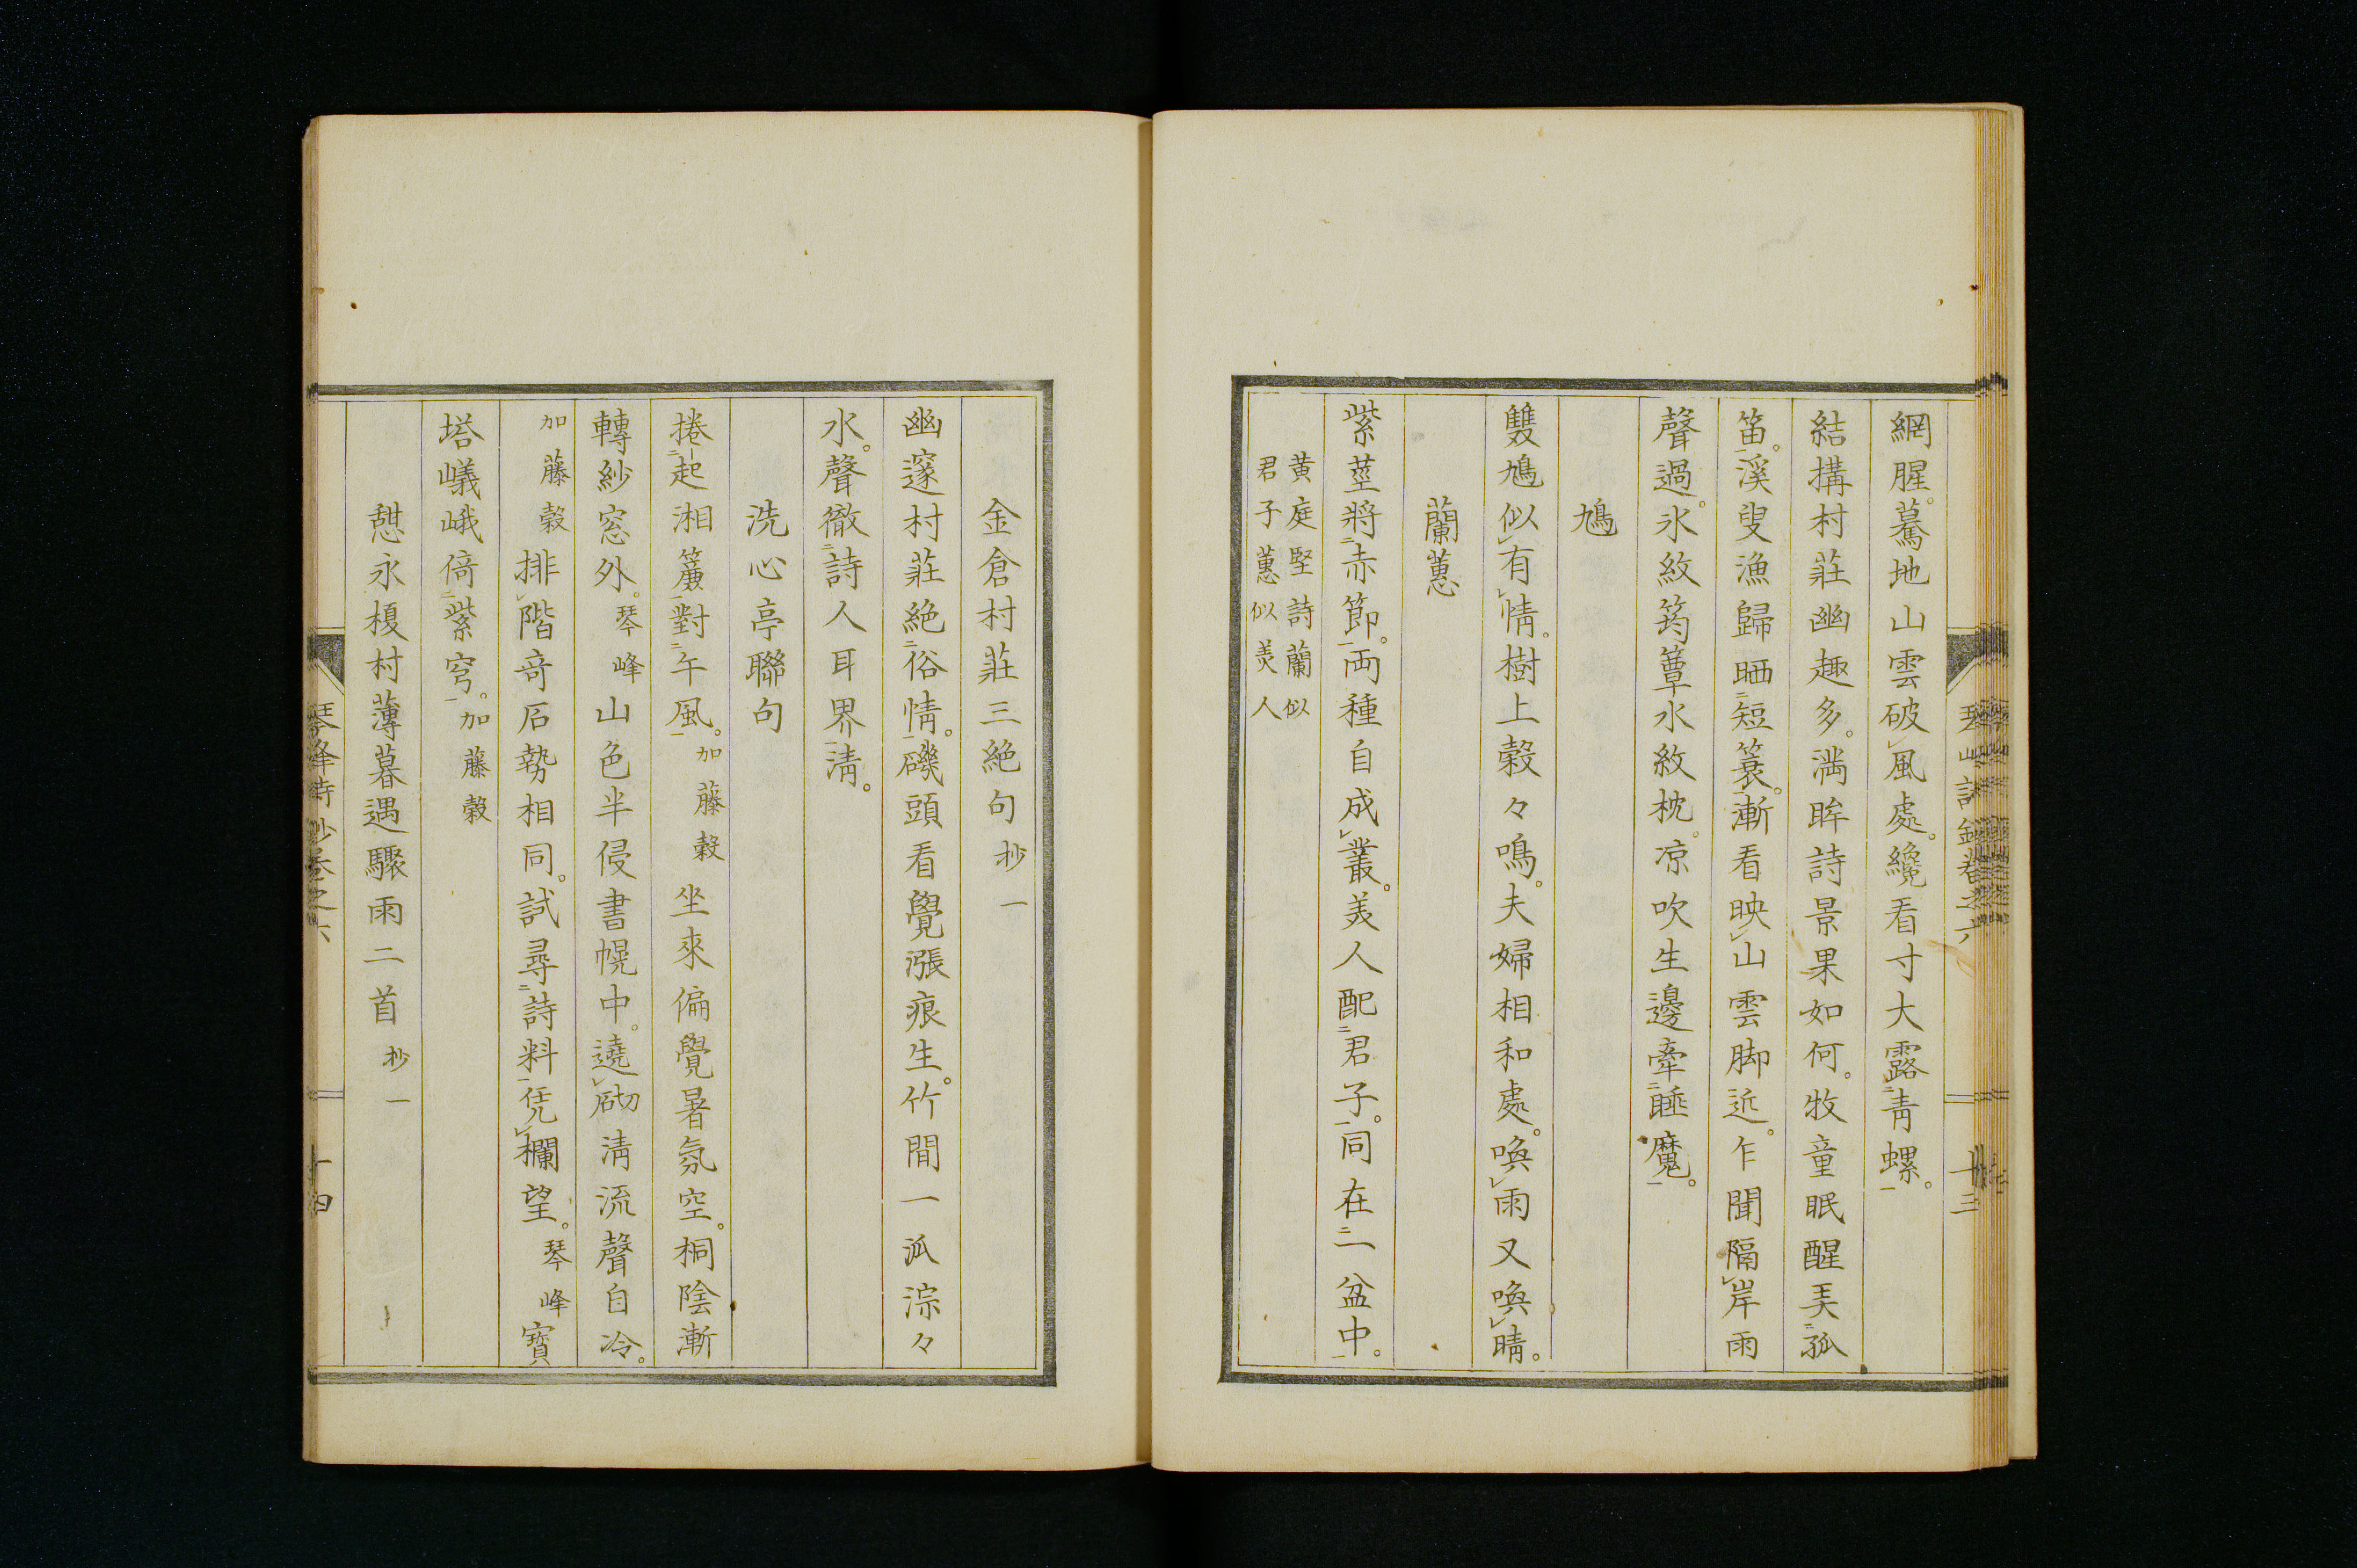 網腥。驀地山雲破レ風處。纔看寸大露二青螺一。
結搆村莊幽趣多。満眸詩景果如何。牧童眠醒弄二孤
笛一。溪叟漁歸晒二短簑一。漸看映レ山雲脚近。乍聞隔レ岸雨
聲過。氷紋筠簟水紋枕。凉吹生邊牽二睡魔一。
鳩
雙鳩似レ有レ情。樹上穀々鳴。夫婦相和處。喚レ雨又喚レ晴。
蘭蕙
紫莖將二赤節一。両種自成レ叢。美人配二君子一。同在二一盆中一。
黄庭堅詩蘭似
君子蕙似美人
金倉村莊三絶句 抄一
幽邃村莊絶二俗情一。磯頭看覺漲痕生。竹間一派淙々
水。聲徹二詩人耳界一清。
洗心亭聯句
捲二起湘簾一對二午風一。加藤穀 坐來偏覺暑氛空。桐陰漸
轉紗窓外。琴峰 山色半侵書幌中。遶レ砌清流聲自冷。
加藤穀 排レ階奇石勢相同。試尋二詩料一凭レ欄望。琴峰 寶
塔嶬峨倚二紫穹一。加藤穀
憇永榎村薄暮遇驟雨二首 抄一
琴峰詩抄巻之六
十四